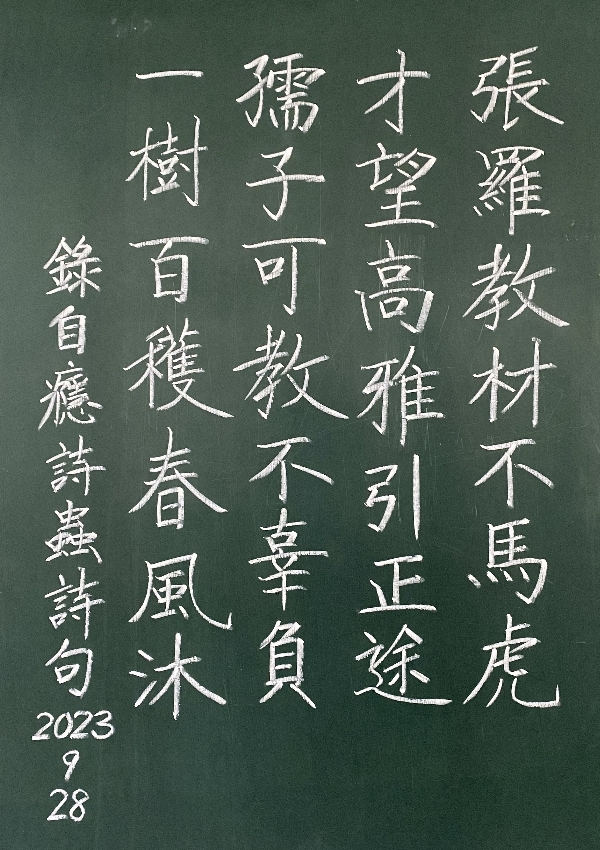 張羅教材不馬虎
才望高雅引正途
孺子可教不辜負
一樹百穫春風沐
錄自癮詩蟲詩句
2023
9
28